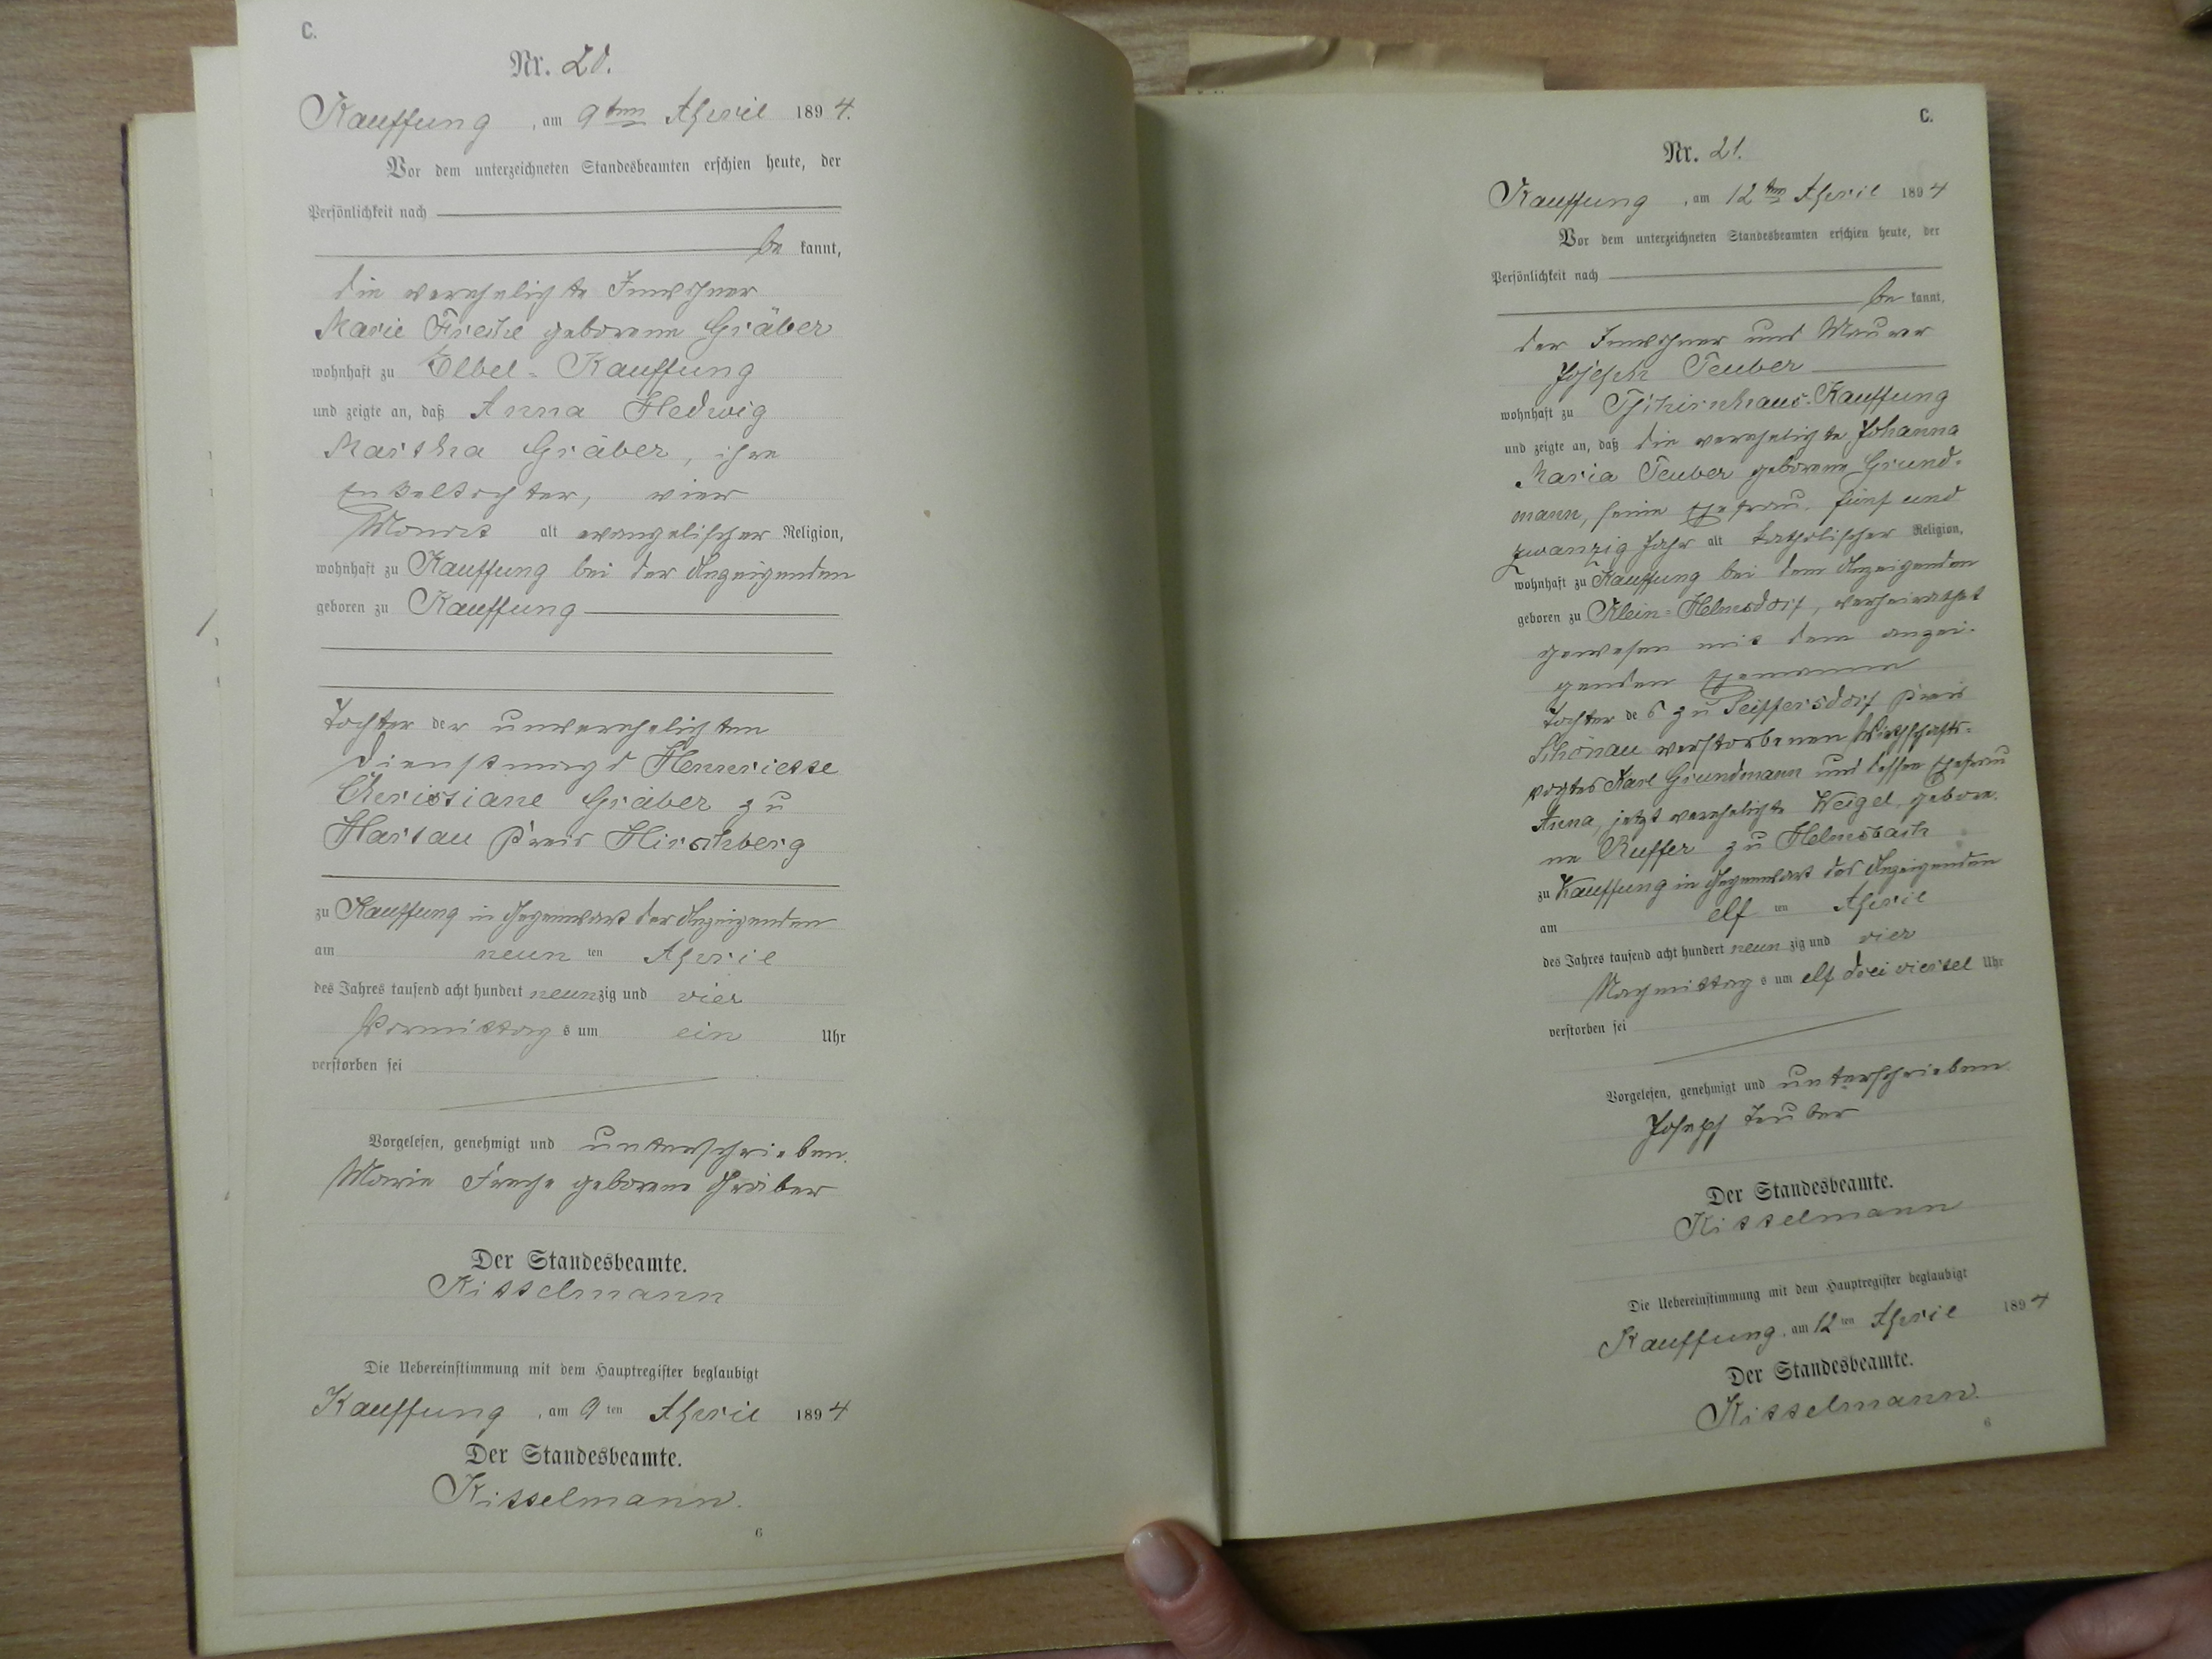 C.
Nr. 20.
Kauffung, am 9ten April 1894.
Vor dem unterzeichneten Standesbeamten erschien heute, der
Persönlichkeit nach
be kannt,
die verehelichte Inwohner
Marie Freche geborene Gräber
wohnhaft zu Elbel-Kauffung
und zeigte an, daß Anna Hedwig
Martha Gräber, ihre
Enkeltochter, vier
Monat alt evangelischer Religion,
wohnhaft zu Kauffung bei der Anzeigenden
geboren zu Kauffung
Tochter der unverehelichten
Dienstmagd Henriette
Christiane Gräber zu
Hartau Kreis Hirschberg
zu Kauffung in Gegenwart der Anzeigenden
am neun ten April
des Jahres tausend acht hundert neunzig und vier
Vormittags um ein Uhr
verstorben sei
Vorgelesen, genehmigt und unterschrieben.
Marie Freche geborene Gräber
Der Standesbeamte.
Kisselmann
Die Uebereinstimmung mit dem Hauptregister beglaubigt
Kauffung, am 9ten April 1894
Der Standesbeamte.
Kisselmann.
6
C.
Nr. 21.
Kauffung, am 12ten April 1894
Vor dem unterzeichneten Standesbeamten erschien heute, der
Persönlichkeit nach
be kannt,
der Inwohner und Maurer
Joseph Teuber
wohnhaft zu Tschirnhaus-Kauffung
und zeigte an, daß die verehelichte Johanna
Maria Teuber geborene Grund-
mann, seine Ehefrau, fünf und
zwanzig Jahr alt katholischer Religion,
wohnhaft zu Kauffung bei dem Anzeigenden
geboren zu Klein-Helmsdorf, verheirathet
gewesen mit dem anzei-
genden Ehemanne
Tochter des zu Seiffersdorf Kreis
Schönau verstorbenen Wirthschafts-
vogtes Karl Grundmann und dessen Ehefrau
Anna, jetzt verehelichte Weigel, gebore-
ne Ruffer zu Helmsbach
zu Kauffung in Gegenwart des Anzeigenden
am elf ten April
des Jahres tausend acht hundert neunzig und vier
Nachmittags um elf drei viertel Uhr
verstorben sei
Vorgelesen, genehmigt und unterschrieben
Joseph Teuber
Der Standesbeamte.
Kisselmann
Die Uebereinstimmung mit dem Hauptregister beglaubigt
Kauffung, am 12ten April 1894
Der Standesbeamte.
Kisselmann.
6